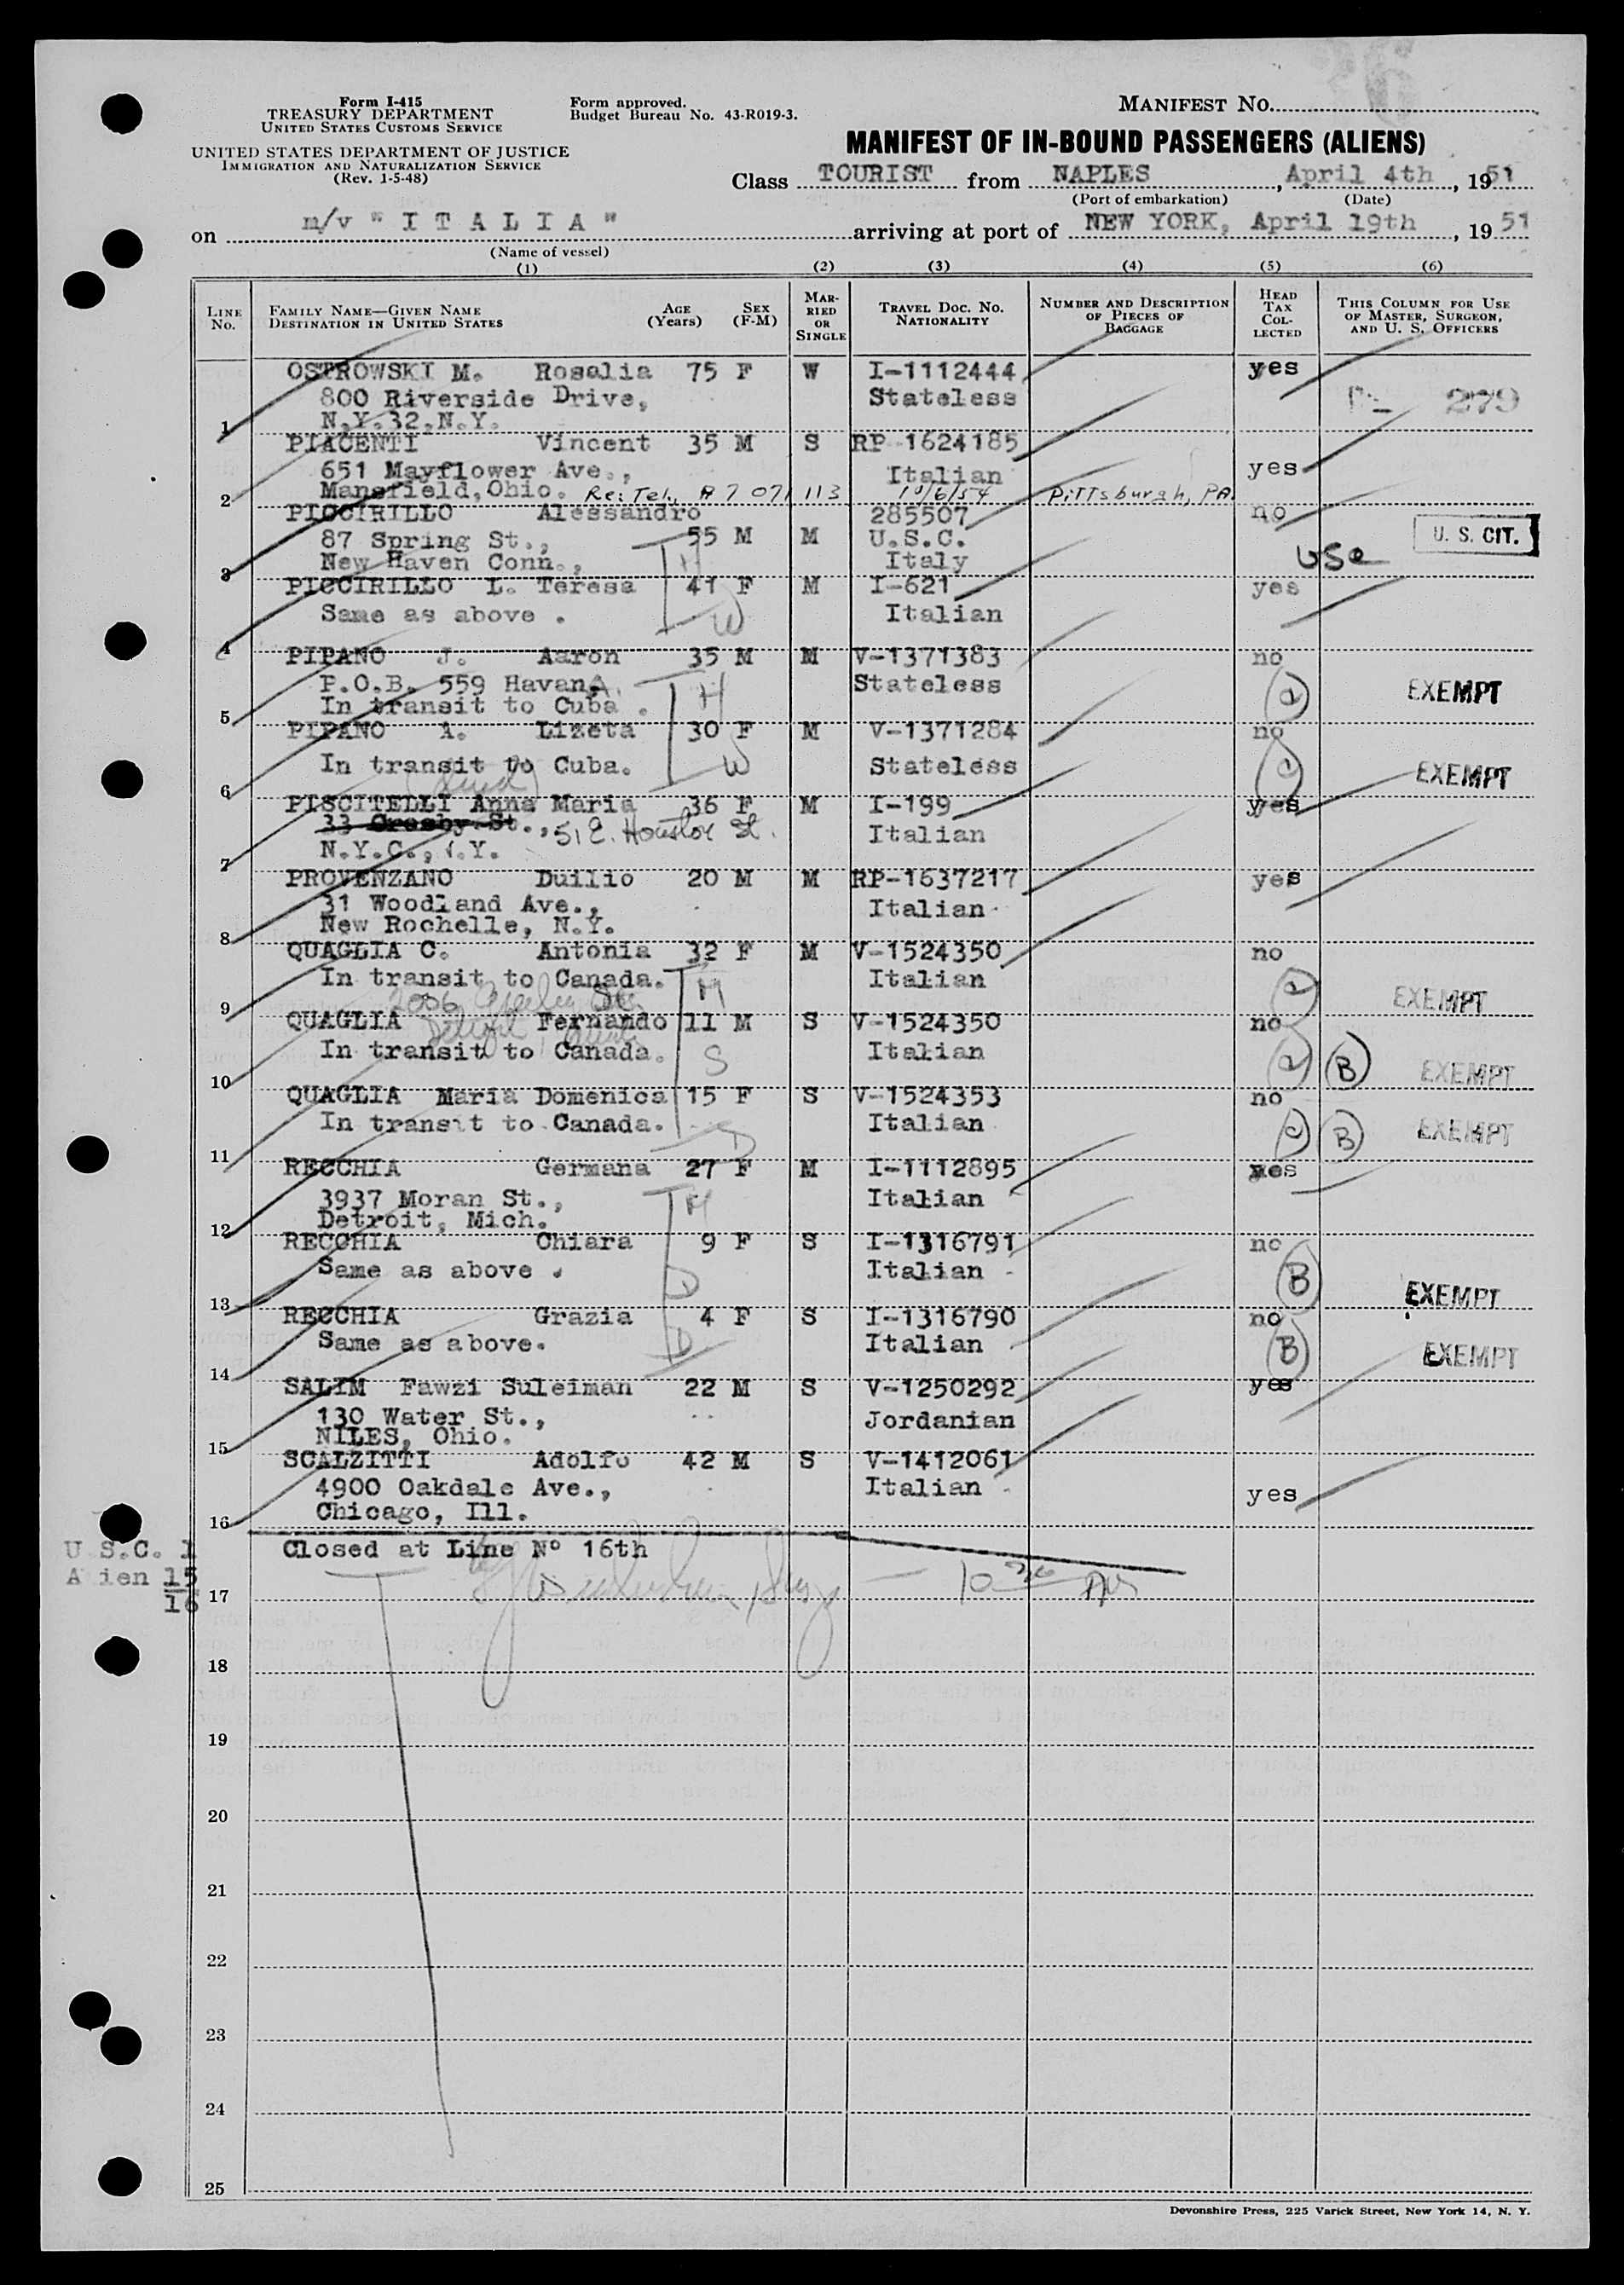 Form I-415
TREASURY DEPARTMENT
UNITED STATES CUSTOMS SERVICE
UNITED STATES DEPARTMENT OF JUSTICE
IMMIGRATION AND NATURALIZATION SERVICE
(Rev. 1-5-48)
Form approved.
Budget Bureau No. 43-R019-3.
MANIFEST NO.
MANIFEST OF IN-BOUND PASSENGERS (ALIENS)
Class TOURIST from NAPLES, April 4th, 1951
(Port of embarkation) (Date)
on m/v " I T A L I A " arriving at port of NEW YORK, April 19th, 1951
(Name of vessel)
(1) (2) (3) (4) (5) (6)
LINE No. FAMILY NAME—GIVEN NAME DESTINATION IN UNITED STATES AGE (Years) SEX (F-M) MARRIED OR SINGLE TRAVEL DOC. NO. NATIONALITY NUMBER AND DESCRIPTION OF PIECES OF BAGGAGE HEAD TAX COLLECTED THIS COLUMN FOR USE OF MASTER, SURGEON, AND U. S. OFFICERS
OSTROWSKI M. Rosalia 75 F W I-1112444 yes
800 Riverside Drive, Stateless 279
1 N.Y.32,N.Y.
PIACENTI Vincent 35 M S RP 1624185
651 Mayflower Ave., Italian yes
2 Mansfield,Ohio. Re: Tel., A 7 071 113 10/6/54 Pittsburgh, PA.
PICCIRILLO Alessandro 285507 no
87 Spring St., 55 M M U.S.C. U. S. CIT.
3 New Haven Conn., H Italy USC
PICCIRILLO L. Teresa 41 F M I-621 yes
Same as above . W Italian
4
PIPANO J. Aaron 35 M M V-1371383 no
P.O.B. 559 Havana. H Stateless a EXEMPT
5 In transit to Cuba .
PIPANO A. Lizeta 30 F M V-1371284 no
In transit to Cuba. W Stateless EXEMPT
6
PISCITELLI Anna Maria 36 F M I-199 yes
33 Crosby St., 51 E. Houston St. Italian
7 N.Y.C., N.Y.
PROVENZANO Duilio 20 M M RP-1637217 yes
31 Woodland Ave., Italian
8 New Rochelle, N.Y.
QUAGLIA C. Antonia 32 F M V-1524350 no
In transit to Canada. M Italian a EXEMPT
9
QUAGLIA Fernando 11 M S V-1524350 no
In transit to Canada. S Italian a B EXEMPT
10
QUAGLIA Maria Domenica 15 F S V-1524353 no
In transit to Canada. D Italian B EXEMPT
11
RECCHIA Germana 27 F M I-1112895 yes
3937 Moran St., M Italian
12 Detroit, Mich.
RECCHIA Chiara 9 F S I-1316791 no
Same as above . D Italian B EXEMPT
13
RECCHIA Grazia 4 F S I-1316790 no
Same as above. D Italian B EXEMPT
14
SALIM Fawzi Suleiman 22 M S V-1250292 yes
130 Water St., Jordanian
15 NILES, Ohio.
SCALZITTI Adolfo 42 M S V-1412061
4900 Oakdale Ave., Italian yes
16 Chicago, Ill.
U.S.C. 1 Closed at Line Nº 16th
Alien 15
16
17
18
19
20
21
22
23
24
25
Devonshire Press, 225 Varick Street, New York 14, N. Y.